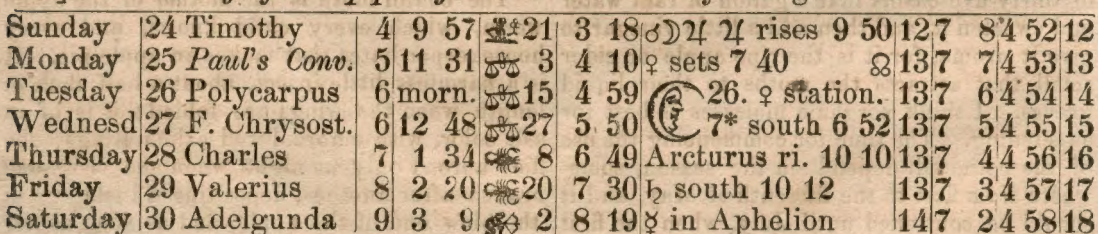 Sunday 24 Timothy 4 9 57 21 3 18 ☌☽♃ ♃ rises 9 50 12 7 8 4 52 12
Monday 25 Paul's Conv. 5 11 31 ♎ 3 4 10 ♀ sets 7 40 ☊ 13 7 7 4 53 13
Tuesday 26 Polycarpus 6 morn. ♎ 15 4 59 26. ♀ station. 13 7 6 4 54 14
Wednesd 27 F. Chrysost. 6 12 48 ♎ 27 5 50 7* south 6 52 13 7 5 4 55 15
Thursday 28 Charles 7 1 34 ♏ 8 6 49 Arcturus ri. 10 10 13 7 4 4 56 16
Friday 29 Valerius 8 2 20 ♏ 20 7 30 ♄ south 10 12 13 7 3 4 57 17
Saturday 30 Adelgunda 9 3 9 ♐ 2 8 19 ☿ in Aphelion 14 7 2 4 58 18